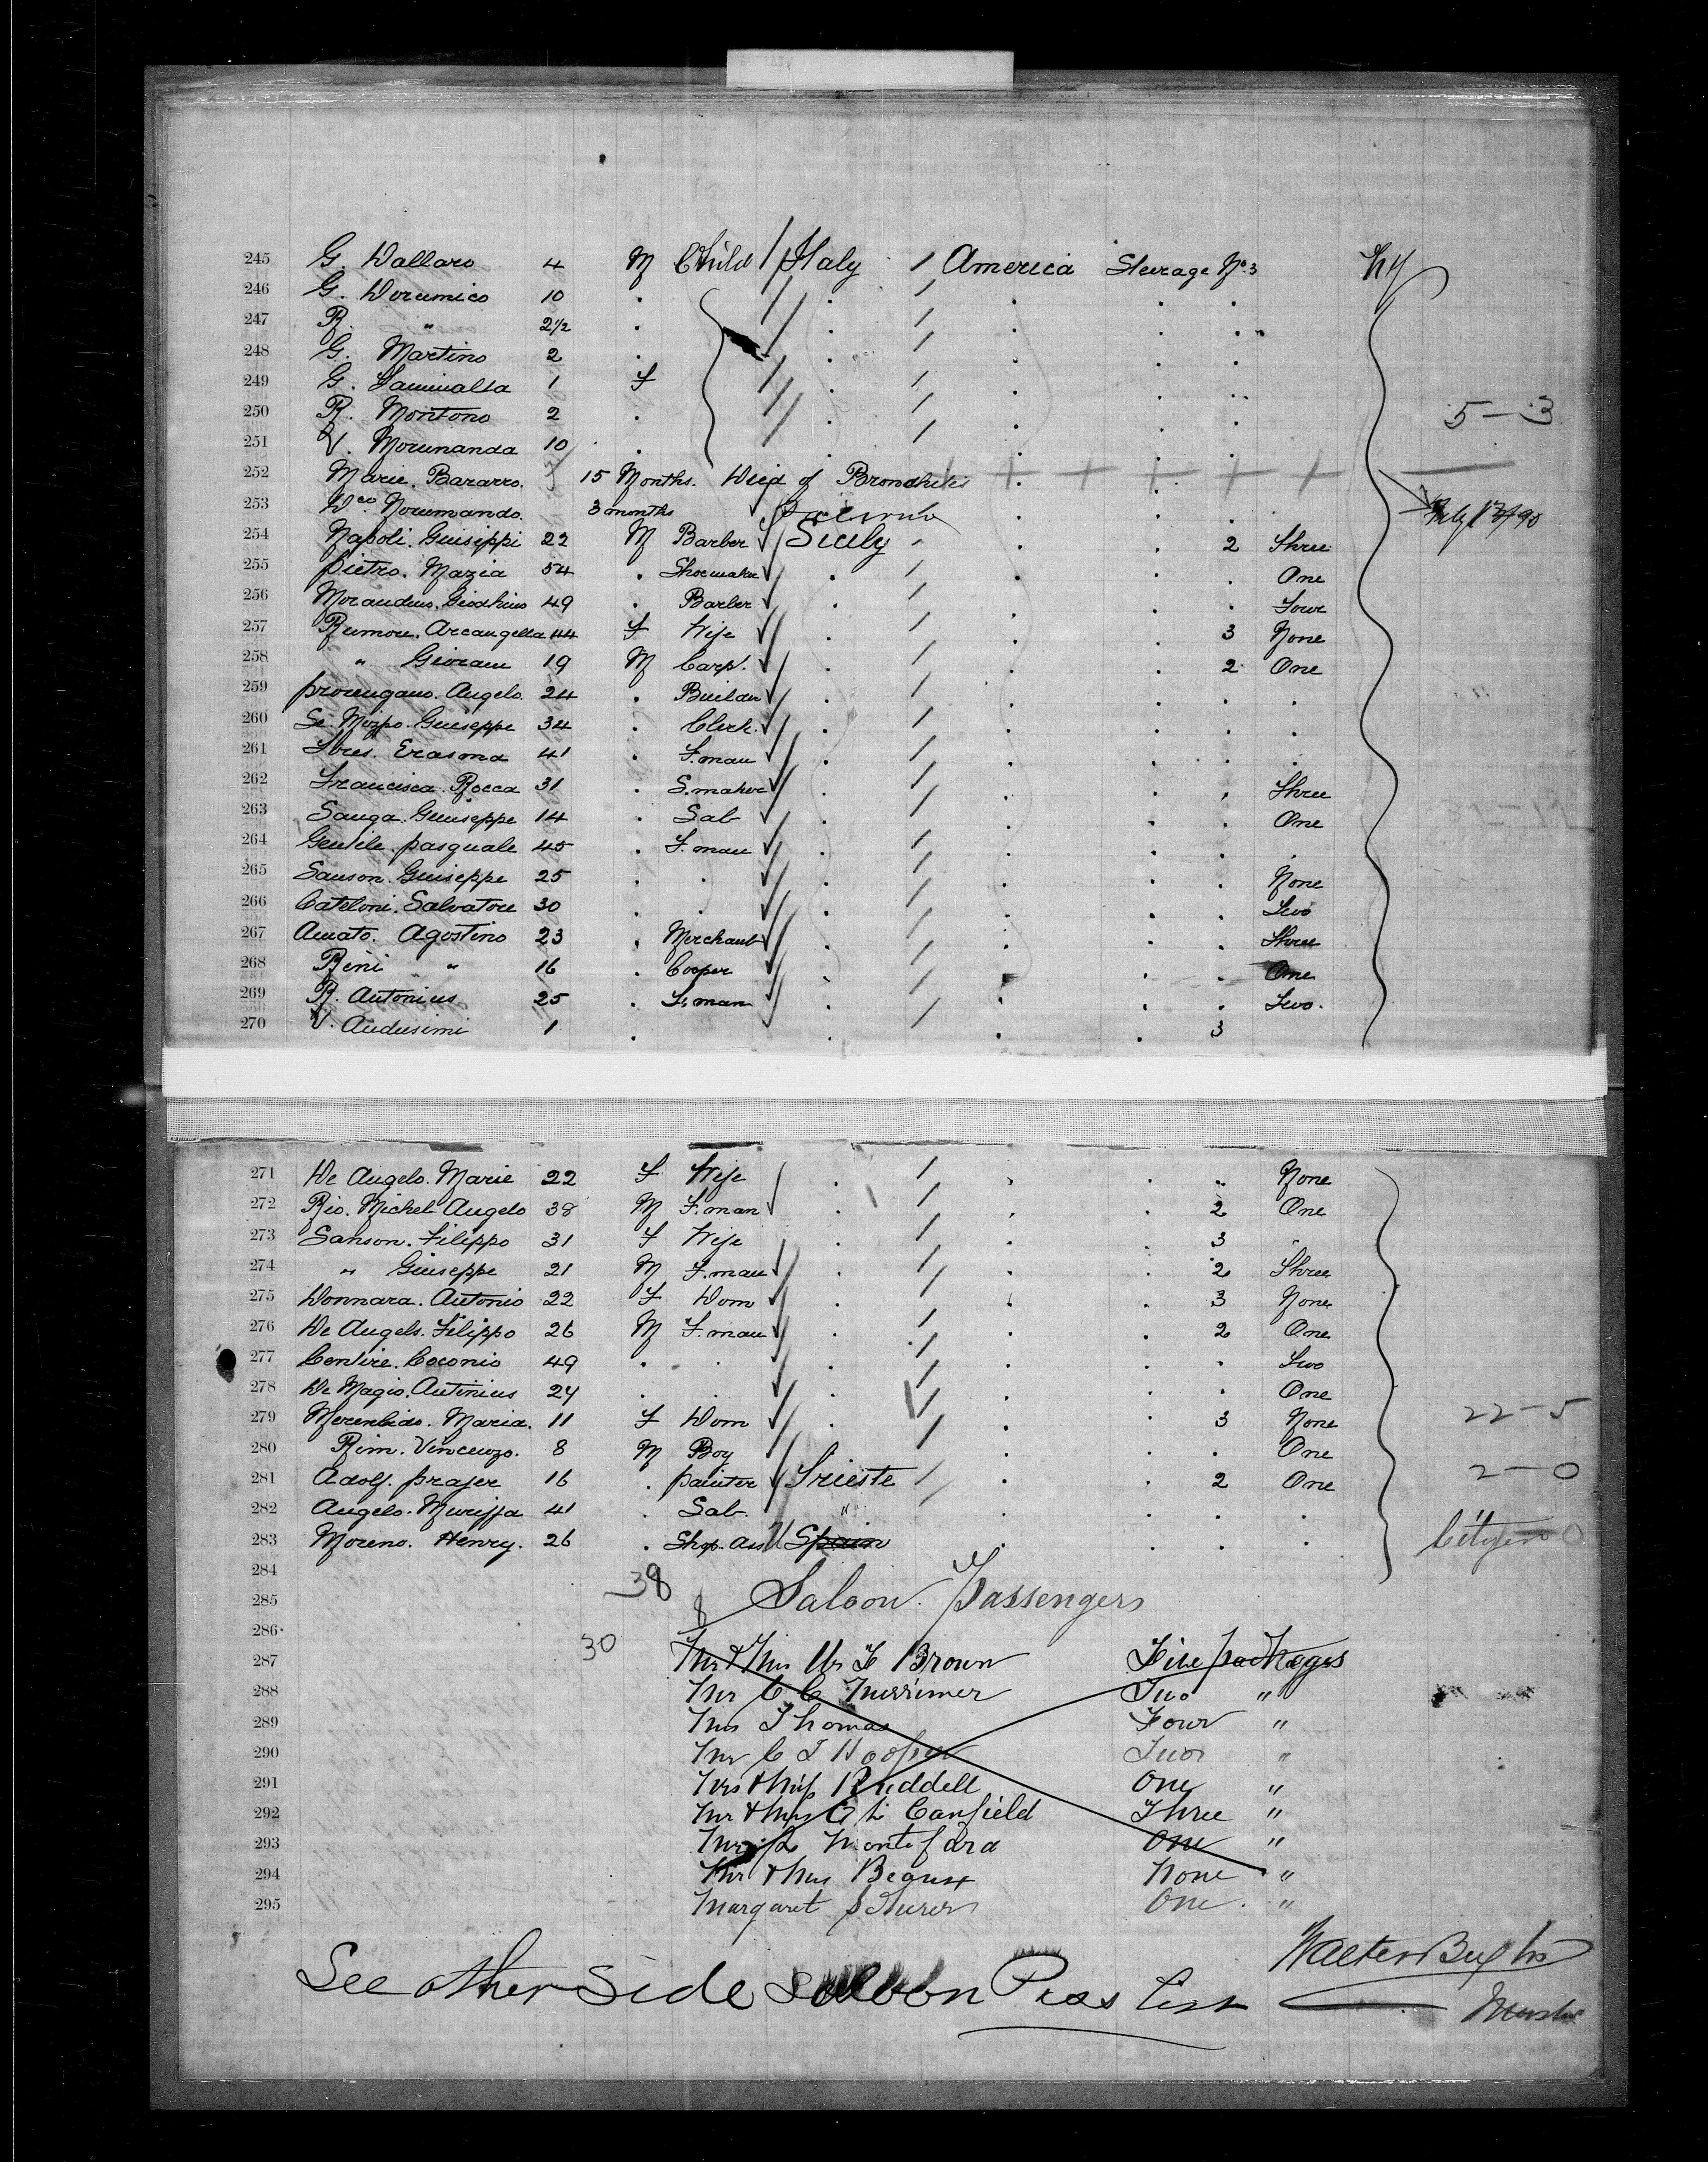 245 G. Dallaro 4 M Child Italy America Steerage No. 3 NY
246 G. Dorumico 10 . . . . .
247 R. " 2½ . . . . .
248 G. Martino 2 . . . . .
249 G. 1 F . . . .
250 R. Montono 2 . . . . . 5-3
251 V. Morunanda 10 . . . . .
252 Marie. Bararro. 15 Months. Died of Bronchitis + + + + +
253 Dco. Norumando. 3 months Palermo . . . July 13/90
254 Napoli. Guiseppi 22 M Barber Sicily . . 2 Three
255 Pietro. Mazia 54 . Shoemaker . . . . One
256 49 . Barber . . . . Four
257 Rumore. Arcangella 44 F Wife . . . 3 None
258 " Gioram 19 M Carp. . . . 2 One
259 Angelo. 24 . Builder . . . . .
260 Guiseppe 34 . Clerk. . . . . .
261 Erasma 41 . F.man . . . . .
262 Francisca. Rocca 31 . S.maker . . . . Three
263 Sanga. Guiseppe 14 . Lab . . . . One
264 Gentile. Pasquale 45 . F.man . . . . .
265 Sanson. Guiseppe 25 . . . . . . None
266 Cateloni. Salvatore 30 . . . . . . Two
267 Amato. Agostino 23 . Merchant . . . . Three
268 Reni " 16 . Cooper . . . . One
269 R. Antonius 25 . F.man . . . . Two.
270 V. Audusimi 1 . . . . 3
271 De Angelo. Marie 22 F Wife . . . " None
272 Rio. Michel Angelo 38 M F.man . . . 2 One
273 Sanson. Filippo 31 F Wife . . . 3 .
274 " Guiseppe 21 M F.man . . . 2 Three
275 Donnara. Antonio 22 F Dom . . . 3 None
276 De Angels. Filippo 26 M F.man . . . 2 One
277 Centire. Coconio 49 . . . . . . Two
278 De Magio. Antinius 24 . . . . . . One
279 Maria. 11 F Dom . . . 3 None 22-5
280 Rim. Vincenzo. 8 M Boy . . . One
281 Adolf. Prajer 16 . Painter Trieste . . 2 One 2-0
282 Angelo. 41 . Lab. " . . . .
283 Moreno. Henry. 26 . Shop. Ass Spain . . . . Citizen 0
284 38
285 8 Saloon Passengers
286 30
287 Mr & Mrs Brown Five packages
288 Mr C C Merrimer Two "
289 Mrs Thomas Four "
290 Mr C T Hooper Two "
291 Mrs & Miss Riddell One "
292 Mr & Mrs Canfield Three "
293 One "
294 Mr & Mrs None "
295 Margaret One. "
See other side Saloon Pass List
Walter
Master